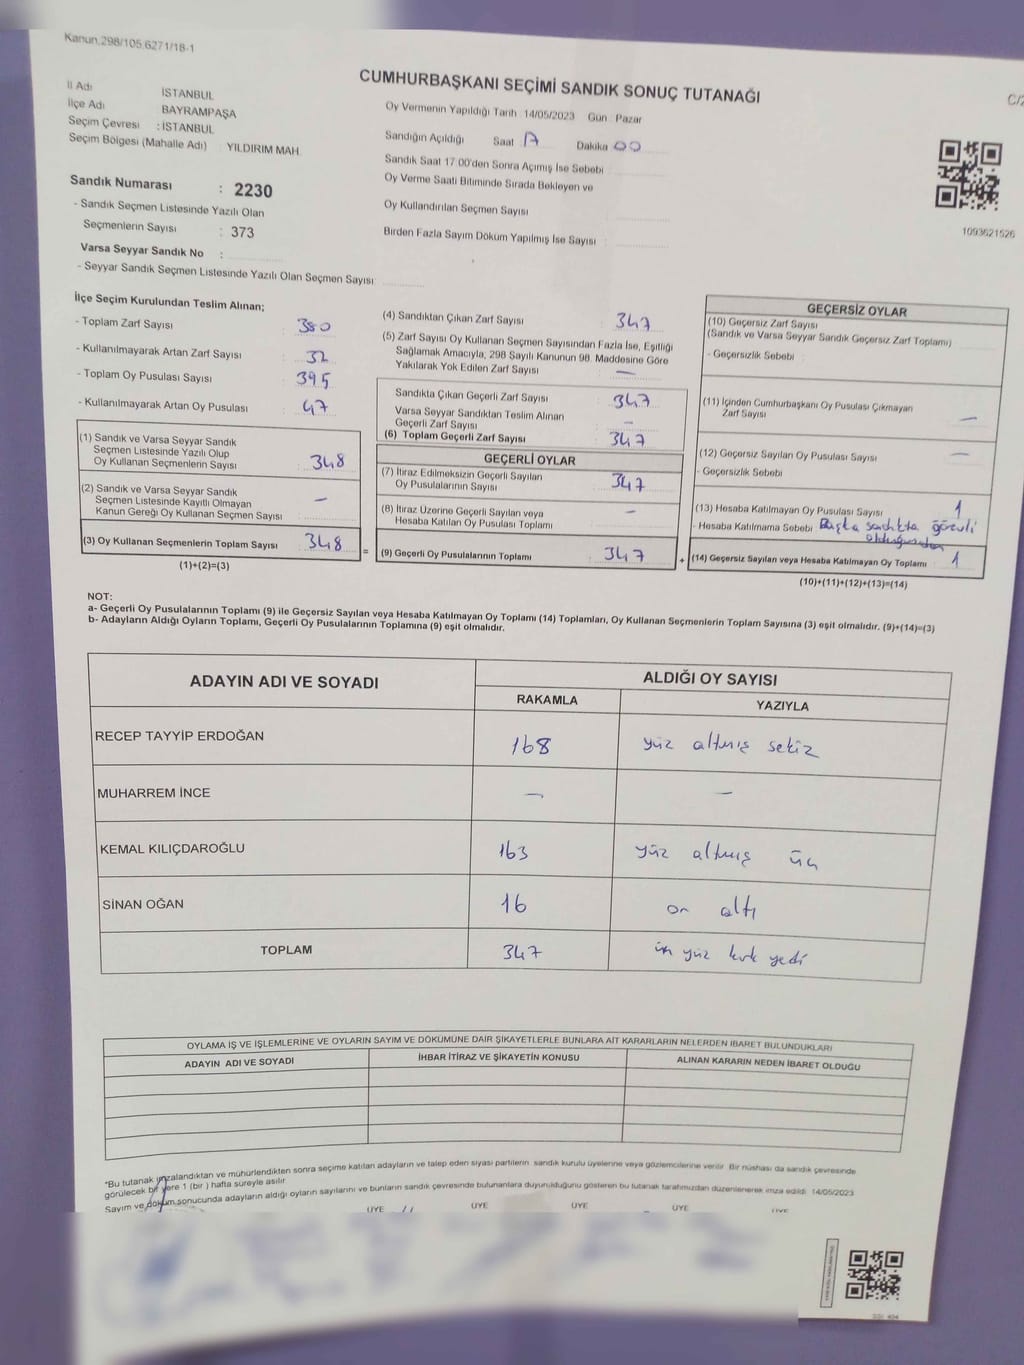 Kanun.298/105.6271/18-1
CUMHURBAŞKANI SEÇİMİ SANDIK SONUÇ TUTANAĞI
C/2
İl Adı İSTANBUL
İlçe Adı BAYRAMPAŞA
Seçim Çevresi : İSTANBUL
Seçim Bölgesi (Mahalle Adı) YILDIRIM MAH.
Sandık Numarası : 2230
- Sandık Seçmen Listesinde Yazılı Olan
Seçmenlerin Sayısı : 373
Varsa Seyyar Sandık No :
- Seyyar Sandık Seçmen Listesinde Yazılı Olan Seçmen Sayısı
Oy Vermenin Yapıldığı Tarih 14/05/2023 Gün Pazar
Sandığın Açıldığı Saat 17 Dakika 00
Sandık Saat 17.00'den Sonra Açımış İse Sebebi
Oy Verme Saati Bitiminde Sırada Bekleyen ve
Oy Kullandırılan Seçmen Sayısı
Birden Fazla Sayım Döküm Yapılmış İse Sayısı :
1093621526
İlçe Seçim Kurulundan Teslim Alınan;
- Toplam Zarf Sayısı 380
- Kullanılmayarak Artan Zarf Sayısı 32
- Toplam Oy Pusulası Sayısı 395
- Kullanılmayarak Artan Oy Pusulası 47
(1) Sandık ve Varsa Seyyar Sandık
Seçmen Listesinde Yazılı Olup
Oy Kullanan Seçmenlerin Sayısı 348
(2) Sandık ve Varsa Seyyar Sandık
Seçmen Listesinde Kayıtlı Olmayan
Kanun Gereği Oy Kullanan Seçmen Sayısı : —
(3) Oy Kullanan Seçmenlerin Toplam Sayısı 348 =
(1)+(2)=(3)
(4) Sandıktan Çıkan Zarf Sayısı 347
(5) Zarf Sayısı Oy Kullanan Seçmen Sayısından Fazla İse, Eşitliği
Sağlamak Amacıyla, 298 Sayılı Kanunun 98. Maddesine Göre
Yakılarak Yok Edilen Zarf Sayısı : —
Sandıkta Çıkan Geçerli Zarf Sayısı 347
Varsa Seyyar Sandıktan Teslim Alınan
Geçerli Zarf Sayısı —
(6) Toplam Geçerli Zarf Sayısı 347
GEÇERLİ OYLAR
(7) İtiraz Edilmeksizin Geçerli Sayılan
Oy Pusulalarının Sayısı 347
(8) İtiraz Üzerine Geçerli Sayılan veya
Hesaba Katılan Oy Pusulası Toplamı : —
(9) Geçerli Oy Pusulalarının Toplamı 347 +
GEÇERSİZ OYLAR
(10) Geçersiz Zarf Sayısı
(Sandık ve Varsa Seyyar Sandık Geçersiz Zarf Toplamı)
- Geçersizlik Sebebi :
(11) İçinden Cumhurbaşkanı Oy Pusulası Çıkmayan
Zarf Sayısı —
(12) Geçersiz Sayılan Oy Pusulası Sayısı —
- Geçersizlik Sebebi
(13) Hesaba Katılmayan Oy Pusulası Sayısı 1
- Hesaba Katılmama Sebebi Başka sandıkta görevli
olduğundan
(14) Geçersiz Sayılan veya Hesaba Katılmayan Oy Toplamı 1
(10)+(11)+(12)+(13)=(14)
NOT:
a- Geçerli Oy Pusulalarının Toplamı (9) ile Geçersiz Sayılan veya Hesaba Katılmayan Oy Toplamı (14) Toplamları, Oy Kullanan Seçmenlerin Toplam Sayısına (3) eşit olmalıdır. (9)+(14)=(3)
b- Adayların Aldığı Oyların Toplamı, Geçerli Oy Pusulalarının Toplamına (9) eşit olmalıdır.
ADAYIN ADI VE SOYADI ALDIĞI OY SAYISI
RAKAMLA YAZIYLA
RECEP TAYYİP ERDOĞAN 168 yüz altmış sekiz
MUHARREM İNCE — —
KEMAL KILIÇDAROĞLU 163 yüz altmış üç
SİNAN OĞAN 16 on altı
TOPLAM 347 üç yüz kırk yedi
OYLAMA İŞ VE İŞLEMLERİNE VE OYLARIN SAYIM VE DÖKÜMÜNE DAİR ŞİKAYETLERLE BUNLARA AİT KARARLARIN NELERDEN İBARET BULUNDUKLARI
ADAYIN ADI VE SOYADI İHBAR İTİRAZ VE ŞİKAYETİN KONUSU ALINAN KARARIN NEDEN İBARET OLDUĞU
*Bu tutanak imzalandıktan ve mühürlendikten sonra seçime katılan adayların ve talep eden siyasi partilerin sandık kurulu üyelerine veya gözlemcilerine verilir. Bir nüshası da sandık çevresinde
görülecek bir yere 1 (bir) hafta süreyle asılır.
Sayım ve döküm sonucunda adayların aldığı oyların sayılarını ve bunların sandık çevresinde bulunanlara duyurulduğunu gösteren bu tutanak tarafımızdan düzenlenerek imza edildi. 14/05/2023
ÜYE ÜYE ÜYE ÜYE ÜYE